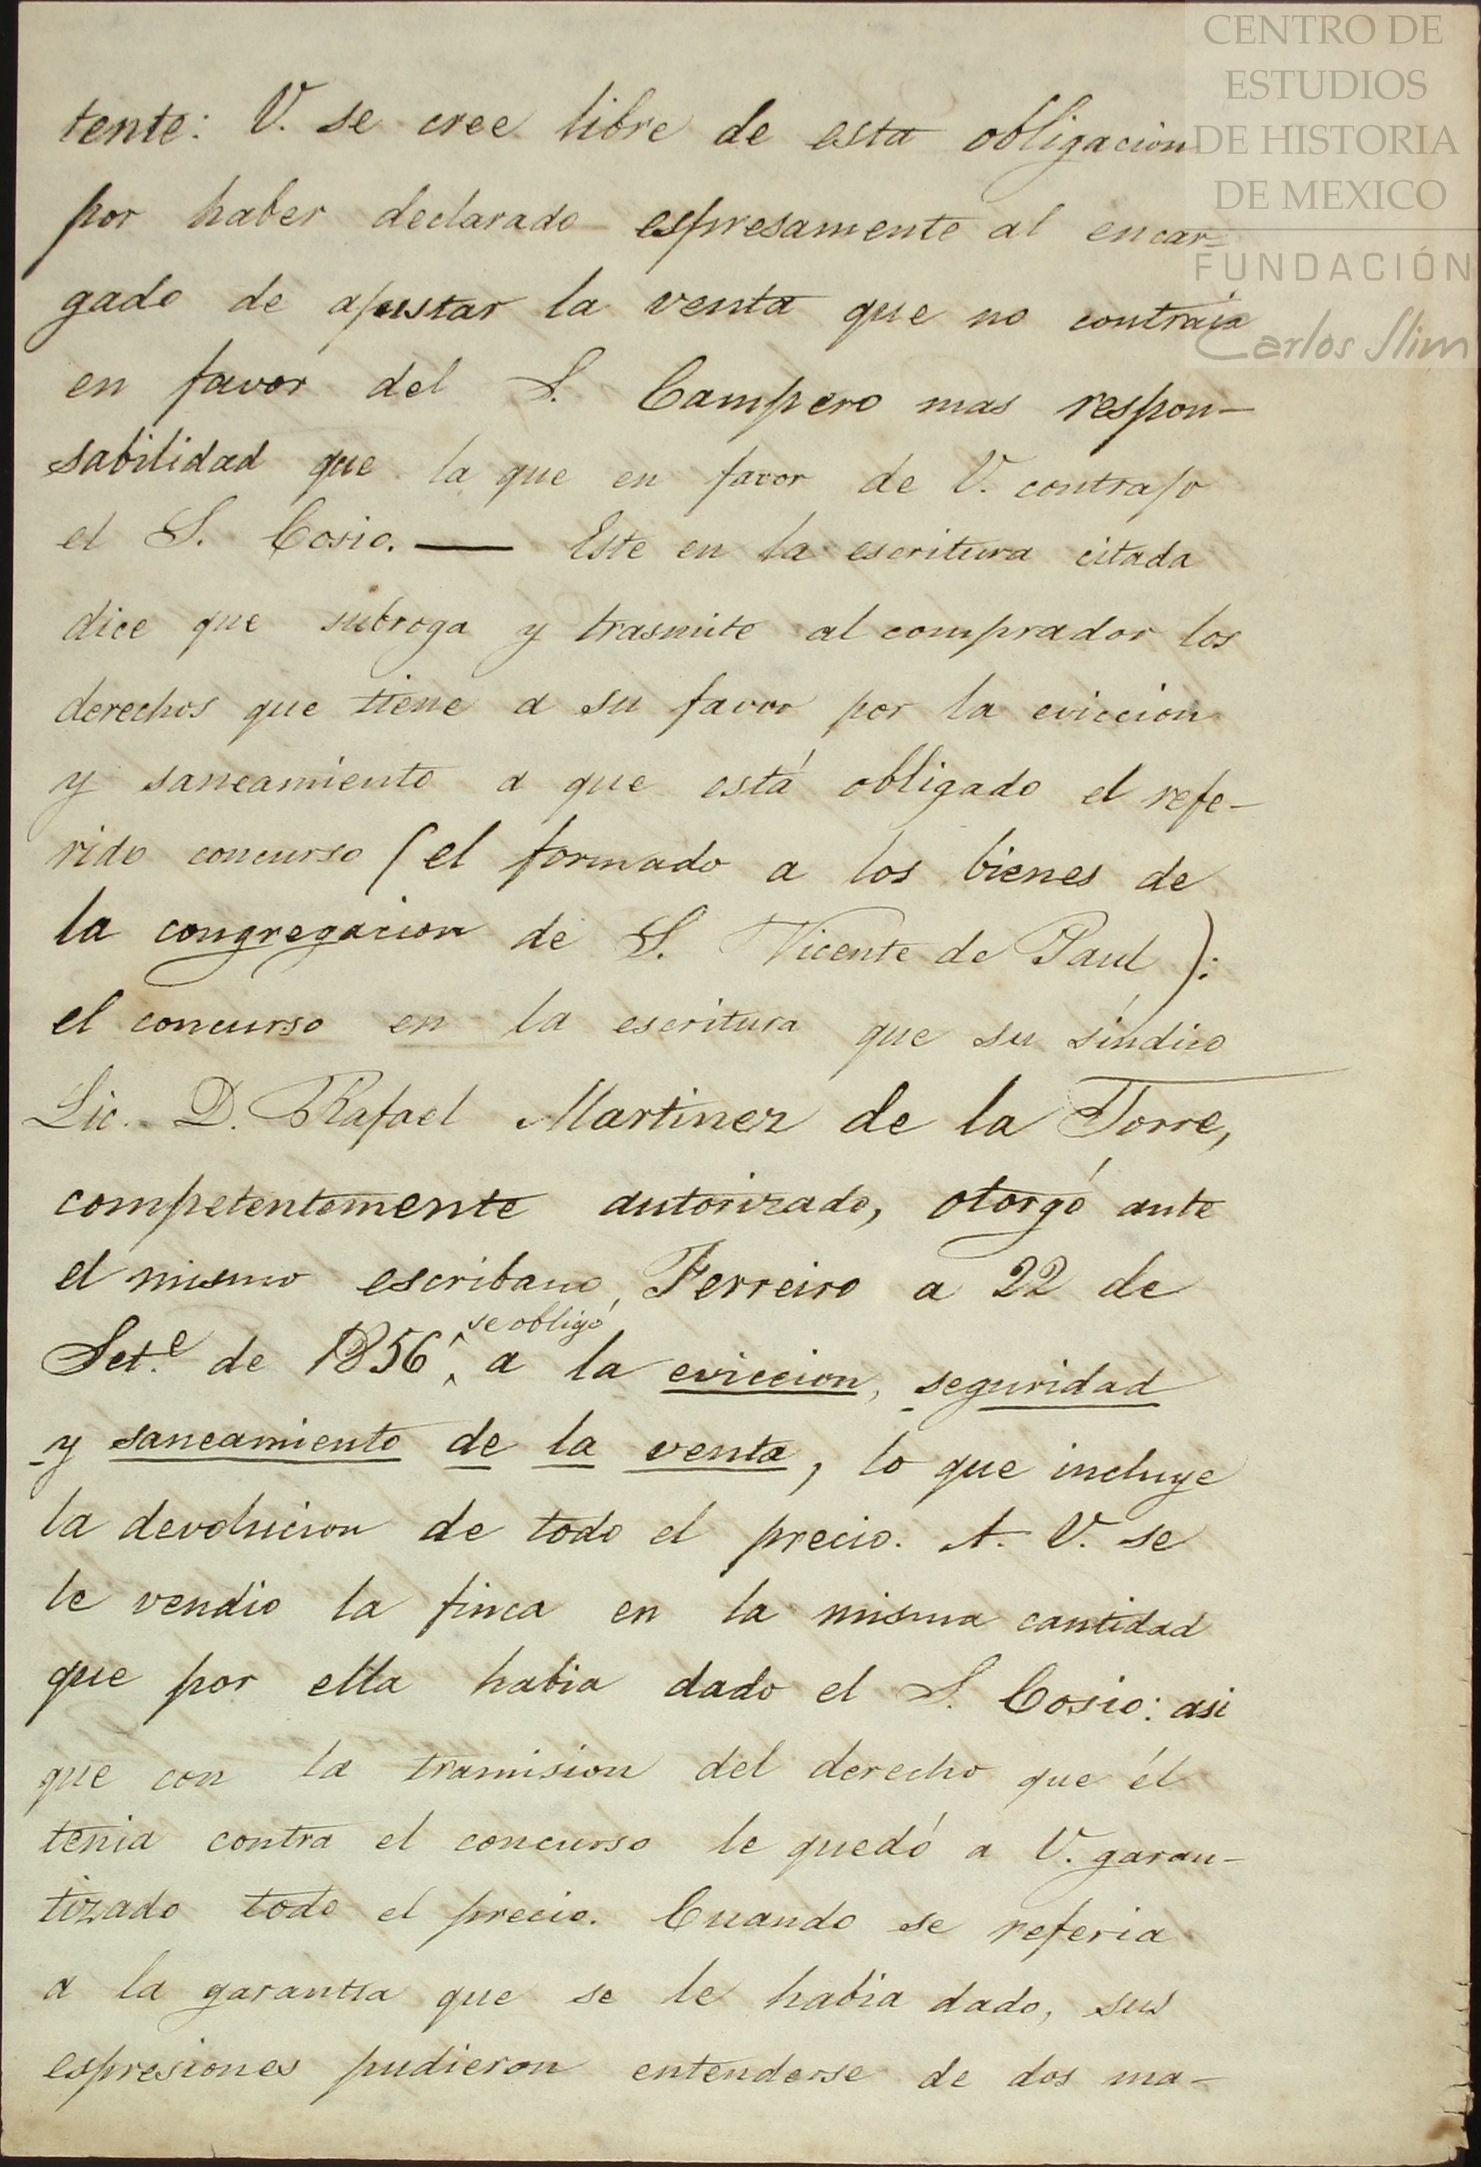 CENTRO DE
ESTUDIOS
DE HISTORIA
DE MEXICO
FUNDACIÓN
Carlos Slim
tente: V. se cree libre de esta obligacion
por haber declarado espresamente al encar-
gado de ajustar la venta que no contraía
en favor del S. Campero mas respon-
sabilidad que la que en favor de V. contrajo
el S. Cosio. — Este en la escritura citada
dice que subroga y trasmite al comprador los
derechos que tiene a su favor por la eviccion
y saneamiento a que está obligado el refe-
rido concurso (el formado a los bienes de
la congregacion de S. Vicente de Paul):
el concurso en la escritura que su síndico
Lic. D. Rafael Martinez de la Torre,
competentemente autorizado, otorgó ante
el mismo escribano Ferreiro a 22 de
Set.e de 1856, se obligó a la eviccion, seguridad
y saneamiento de la venta, lo que incluye
la devolucion de todo el precio. A. V. se
le vendió la finca en la misma cantidad
que por ella habia dado el S. Cosio: asi
que con la tramision del derecho que él
tenia contra el concurso le quedó a V. garan-
tizado todo el precio. Cuando se referia
a la garantia que se le habia dado, sus
espresiones pudieron entenderse de dos ma-